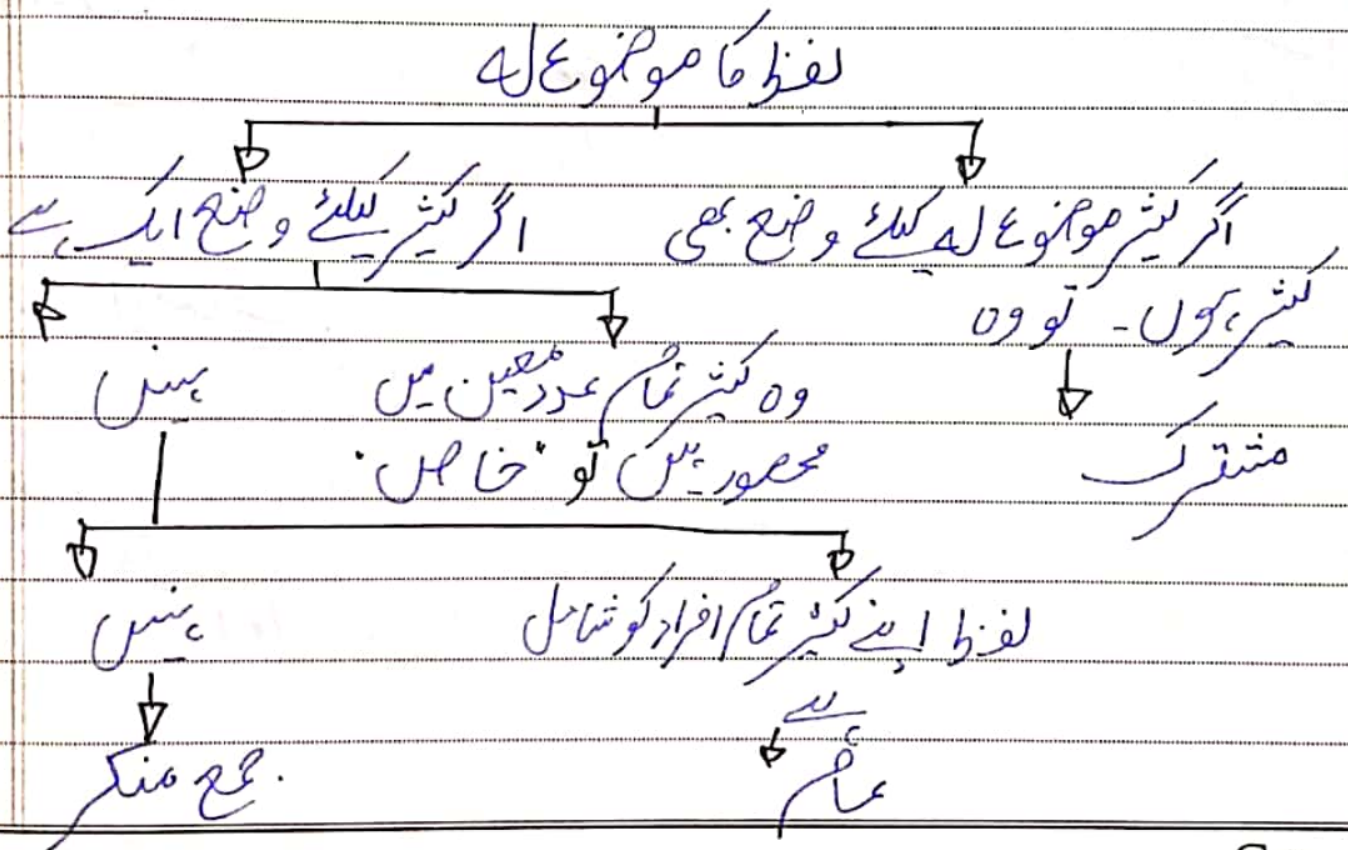 لفظ کا موضوع لہ
اگر کثیر موضوع لہ کیلئے وضع بھی
کثیر ہوں۔ تو وہ
مشترک
اگر کثیر کیلئے وضع ایک ہے
وہ کثیر تمام عدد معین میں
محصور ہیں تو "خاص"
نہیں
لفظ اپنے کثیر تمام افراد کو شامل
ہے
عام
نہیں
جمع منکر